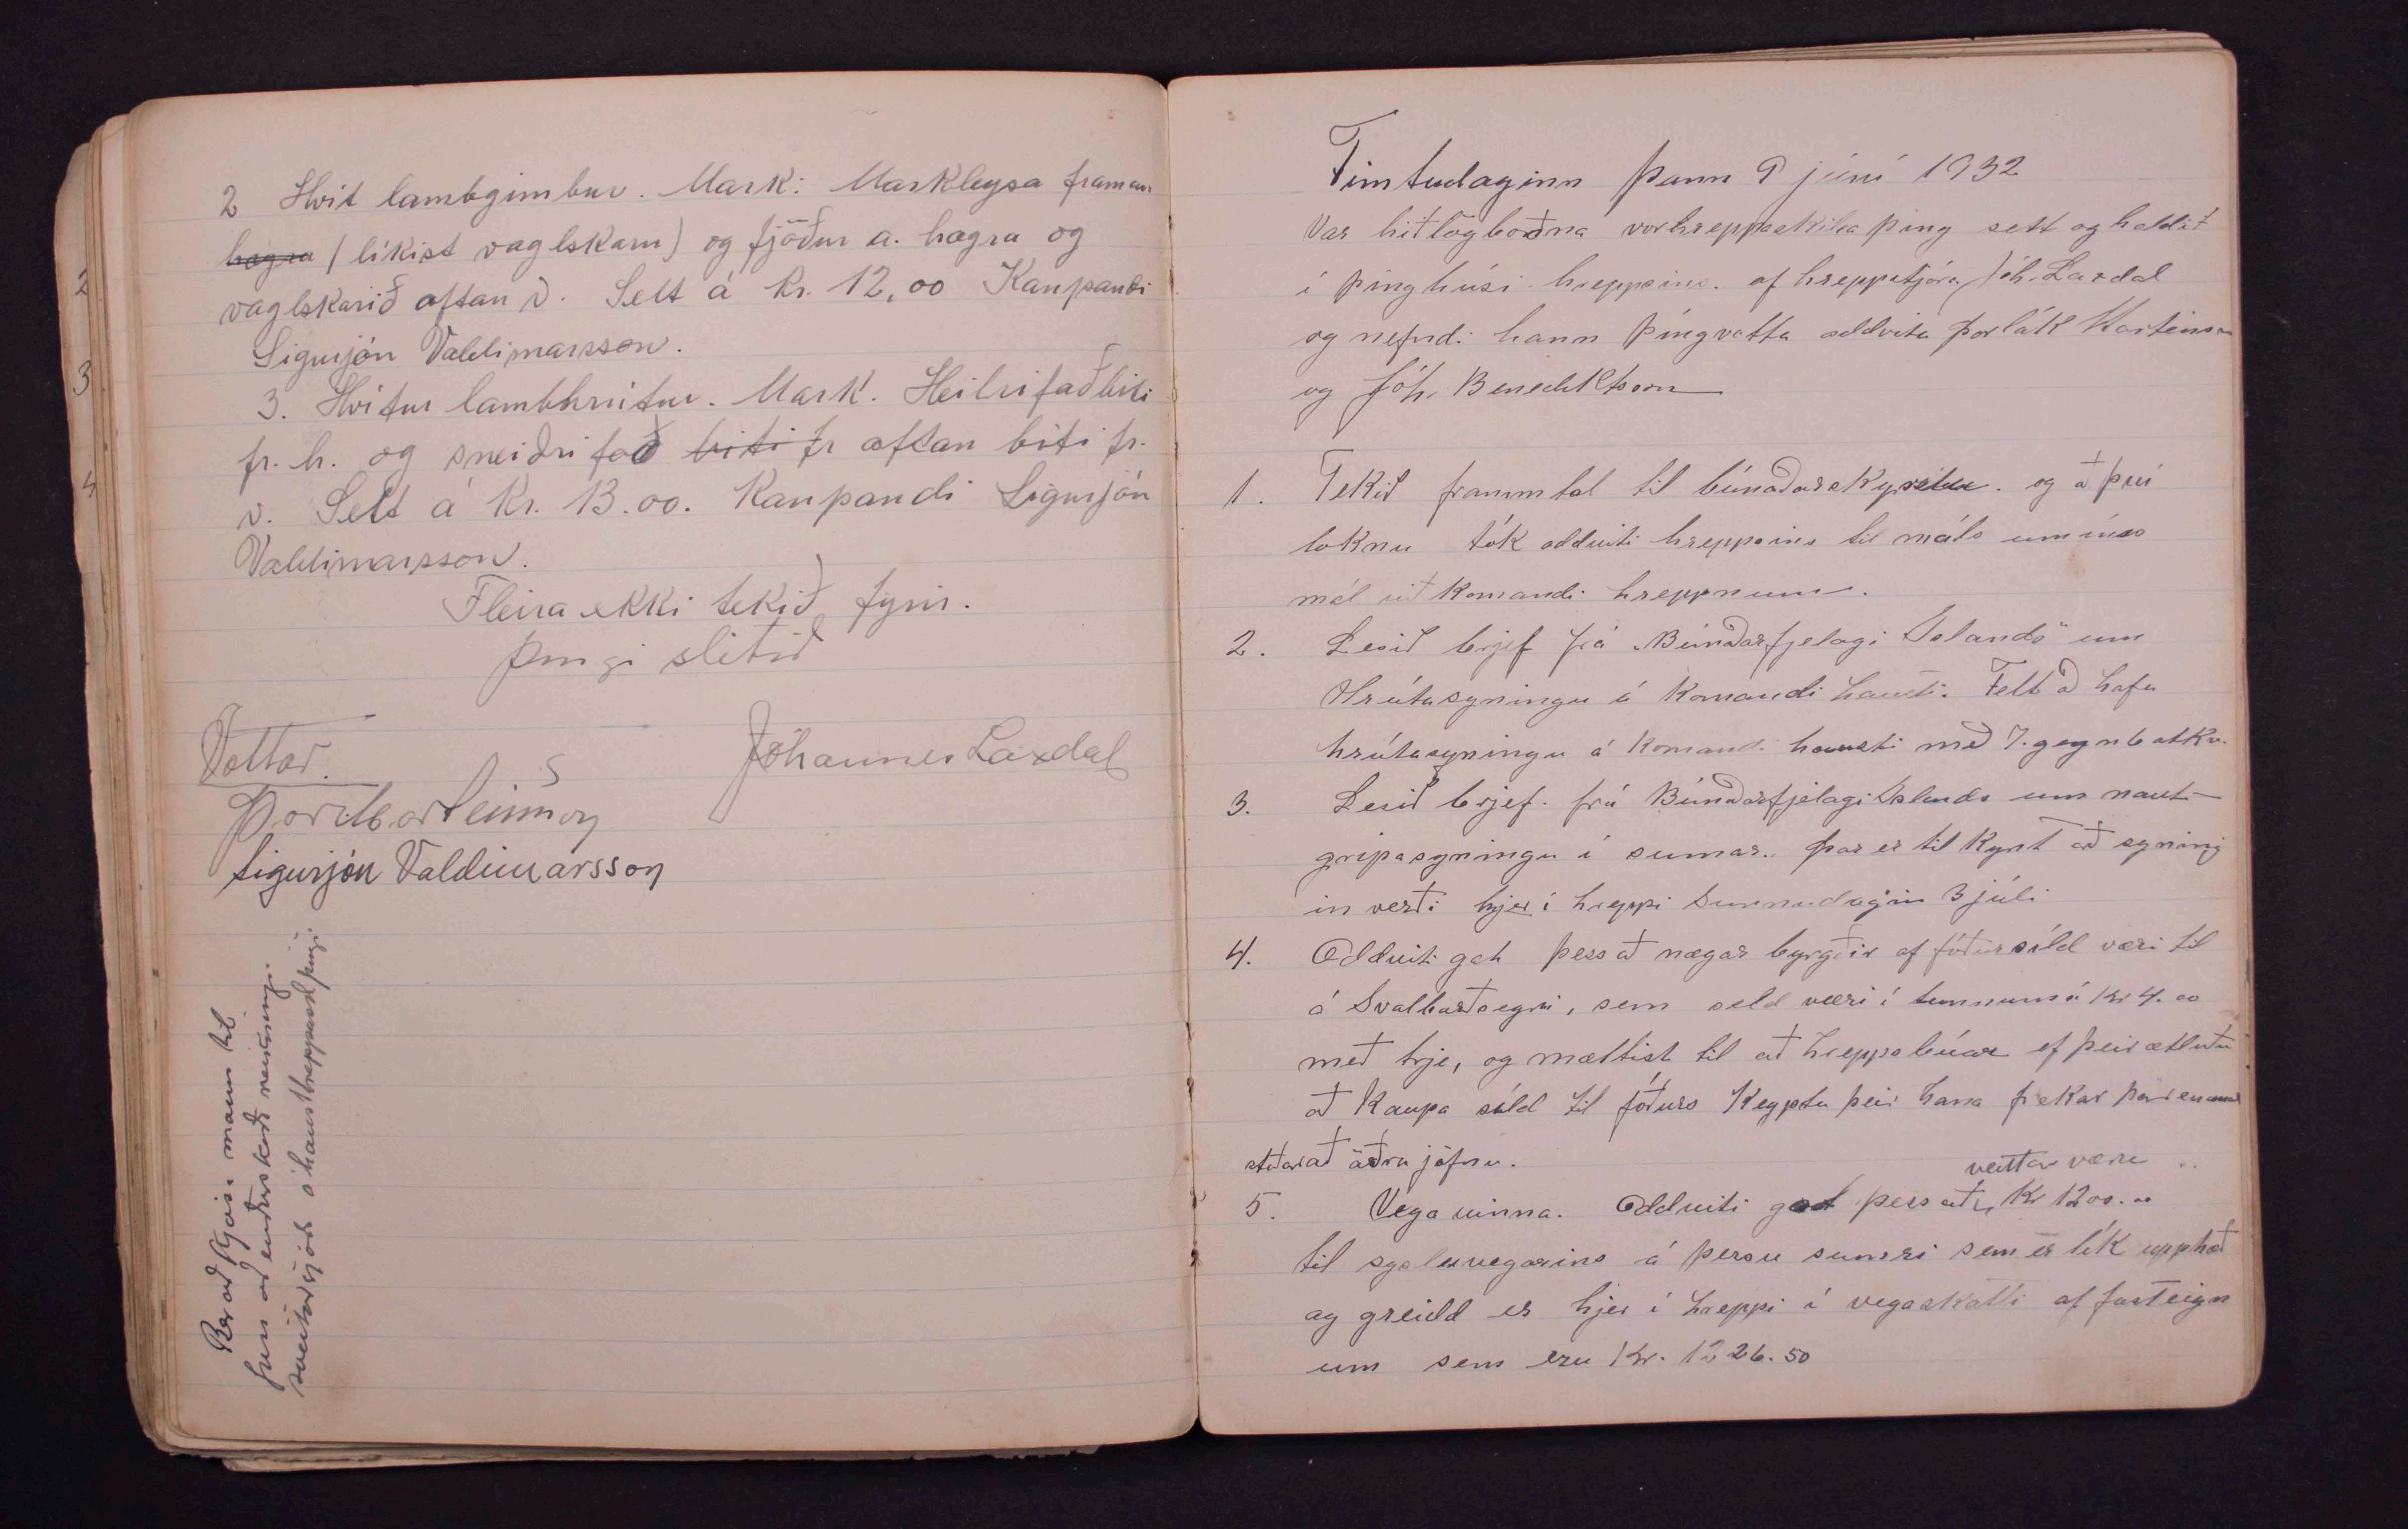 2 Hvít lambgimbur. Mark: Markleysa framan
hægra (líkist vaglskaru) og fjöður a. hægra og
vaglskarið aftan v. Selt á kr. 12,00 Kaupandi
Sigurjón Valdimarsson.
3. Hvítur lambhrútur. Mark. Heilrifað biti
fr. h. og sneiðrifað biti fr aftan biti fr.
v. Selt á Kr. 13.00. Kaupandi Sigurjón
Valdimarsson.
Fleira ekki tekið fyrir.
Þingi slitið
Jóhannes Laxdal
Vottar.
Þorl Marteinsson
Sigurjón Valdimarsson
Ber að kjósa mann til
þess að endurskoða reikninga
sveitarsjóðs á hausthreppaskilþingi
2
3
4
Fimtudaginn þann 9 júní 1932
Var hið lögboðna vorhreppaskilaþing sett og haldið
í þinghúsi hreppsins. af hreppstjóra Jóh. Laxdal
og nefndi hann þingvotta oddvita Þorlák Marteinsson
og Jóh. Benediktsson
1. Tekið frammtal til búnaðarskyrslu. og að því
loknu tók oddviti hreppsins til máls um ímis
mál við komandi hreppnum.
2. Lesið brjef frá "Búnaðarfjelagi Íslands" um
Hrútasyningu á komandi hausti. Felt að hafa
hrútasyningu á komandi hausti með 7. gegn 6 atkv.
3. Lesið brjef. frá Búnaðarfjelagi Íslands um naut-
gripasyningu í sumar. Þar er til kynt að syning
in verði hjer í hreppi Sunnudagin 3 júli
4. Oddviti gat þess að nægar byrgðir af fóðursíld væri til
á Svalbarðseyri, sem seld væri í tunnum á Kr 4.00
með trje, og mæltist til að hreppsbúar ef þeir ætluðu
að kaupa síld til fóðurs Keyptu þeir hana frekar þar en annar
staðar að öðru jöfnu.
veittar væru
5. Vegavinna. Oddviti gat þess að, Kr 1200.00
til sysluvegarins á þessu sumri sem er lík upphæð
og greidd er hjer í hreppi í vegaskatti af fasteign
um sem eru Kr. 1226.50